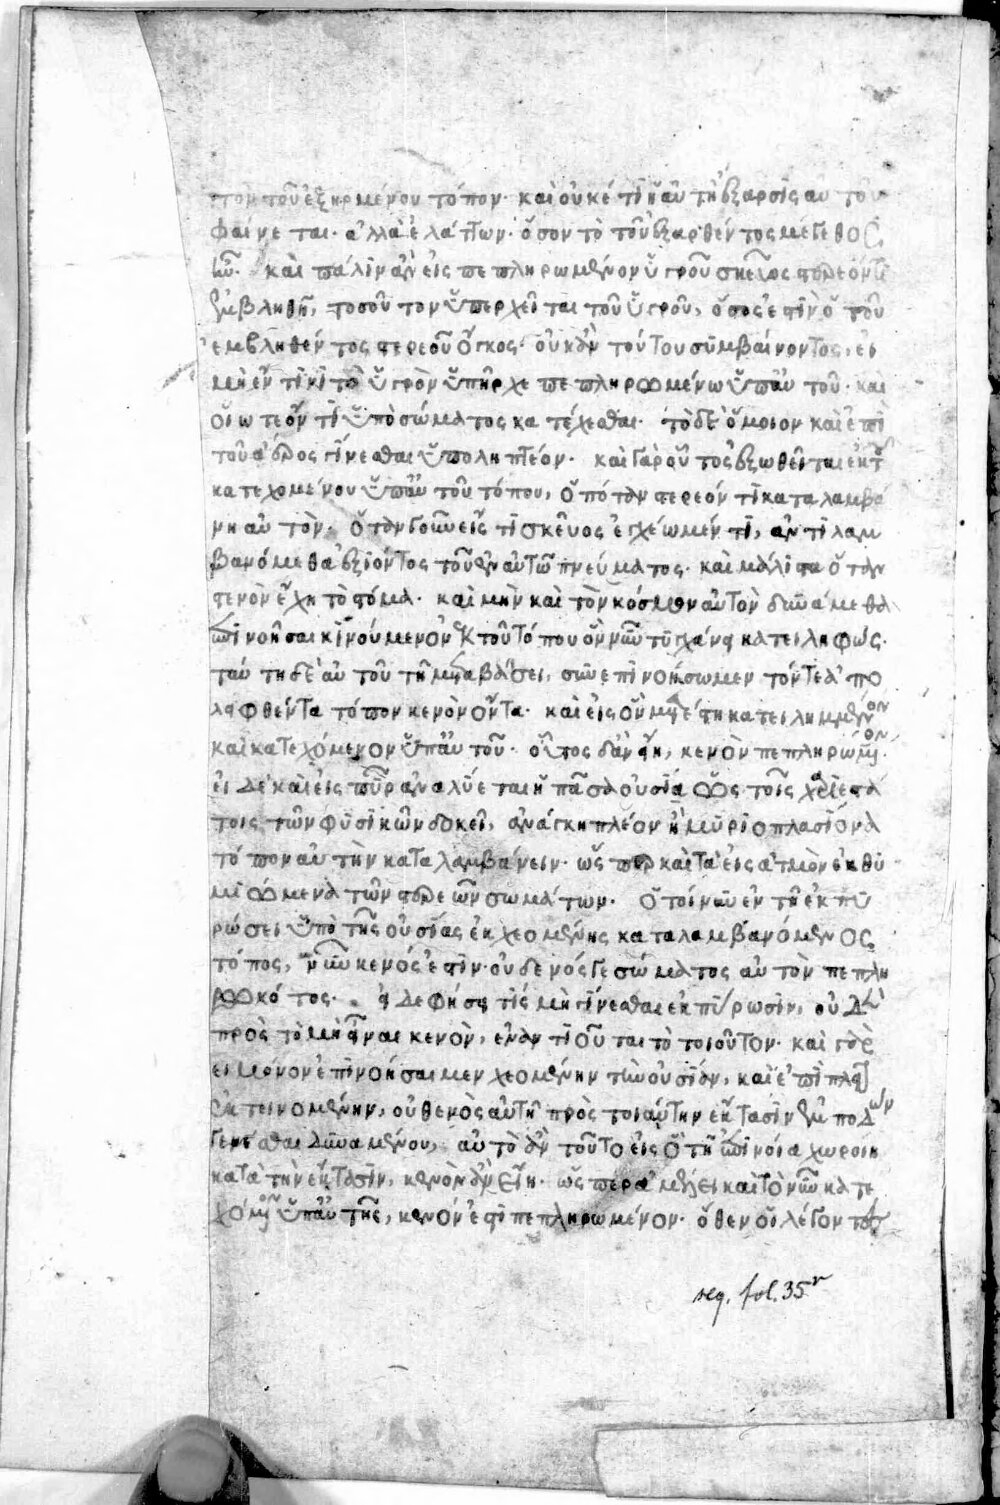 τὸν τοῦ ἐξῃρμένου τόπον· καὶ οὐκέτι ἡ αὐτὴ ἐξαρσις αὐτοῦ
φαίνεται· ἀλλὰ ἐλάττων· ὅσον τὸ τοῦ ἐξαρθέντος μέγεθος
ἦν· καὶ πάλιν ἂν εἰς πεπληρωμένον ὑγροῦ σκεῦος στερεόν τι
ἐμβληθῇ, τοσοῦτον ὑπερχεῖται τοῦ ὑγροῦ, ὅσος ἐστὶν ὁ τοῦ
ἐμβληθέντος στερεοῦ ὄγκος· οὐκ ἂν τούτου συμβαίνοντος, εἰ
μὴ ἔν τινι τὸ ὑγρὸν ὑπῆρχε πεπληρωμένω ὑπ' αὐτοῦ· καὶ
οἵω τε ὄντι ὑπὸ σώματος κατέχεσθαι· τὸ δὲ ὅμοιον καὶ ἐπὶ
τοῦ ἀέρος γίνεσθαι ὑποληπτέον· καὶ γὰρ οὗτος ἐξωθεῖται ἐκ τοῦ
κατεχομένου ὑπ' αὐτοῦ τόπου, ὁπόταν στερεόν τι καταλαμβά
νη αὐτὸν· ὅταν γοῦν εἰς τι σκεῦος ἐγχέωμέν τι, ἀντιλαμ
βανόμεθα ἐξιόντος τοῦ ἐν αὐτῶ πνεύματος· καὶ μάλιστα ὅταν
στενὸν ἔχη τὸ στόμα· καὶ μὴν καὶ τὸν κόσμον αὐτὸν δυνάμεθα
ἐπινοῆσαι κινούμενον ἐκ τοῦ τόπου ὃν νῦν τυγχάνει κατειληφώς·
ταύτη δὲ αὐτοῦ τῆ μεταβάσει, συνεπινοήσωμεν τόν τε ἀπο
λειφθέντα τόπον κενὸν ὄντα· καὶ εἰς ὃν μετέστη κατειλημμένον
καὶ κατεχόμενον ὑπ' αὐτοῦ· οὗτος δ' ἂν εἴη, κενὸν πεπληρωμένον.
εἰ δὲ καὶ εἰς πῦρ ἀναλύεται ἡ πᾶσα οὐσία ὡς τοῖς χαριεστά
τοις τῶν φυσικῶν δοκεῖ, ἀνάγκη πλέον ἢ μυριοπλασίονα
τόπον αὐτὴν καταλαμβάνειν· ὥσπερ καὶ τὰ εἰς ἀτμὸν ἐκθυ
μιώμενα τῶν στερεῶν σωμάτων· ὁ τοίνυν ἐν τῆ ἐκπυ
ρώσει ὑπὸ τῆς οὐσίας ἐκχεομένης καταλαμβανόμενος
τόπος, νῦν κενός ἐστιν· οὐδενός γε σώματος αὐτὸν πεπλη
ρωκότος· εἰ δὲ φήσει τίς μὴ γίνεσθαι ἐκπύρωσιν, οὐδὲν
πρὸς τὸ μὴ εἶναι κενὸν, ἐναντιοῦται τὸ τοιοῦτον· καὶ γὰρ
εἰ μόνον ἐπινοήσαιμεν χεομένην τὴν οὐσίαν, καὶ ἐπὶ πλεῖον
ἐκτεινομένην, οὐθενὸς αὐτῆ πρὸς τοιαύτην ἔκτασιν ἐμποδὼν
γενέσθαι δυναμένου, αὐτὸ ἂν τοῦτο εἰς ὃ τῆ ἐπινοία χωροίη
κατὰ τὴν ἔκτασιν, κενὸν ἂν εἴη· ὥσπερ ἀμέλει καὶ τὸ νῦν κατε
χόμενον ὑπ' αὐτῆς, κενόν ἐστι πεπληρωμένον· ὅθεν οἱ λέγοντες
seq. fol. 35r